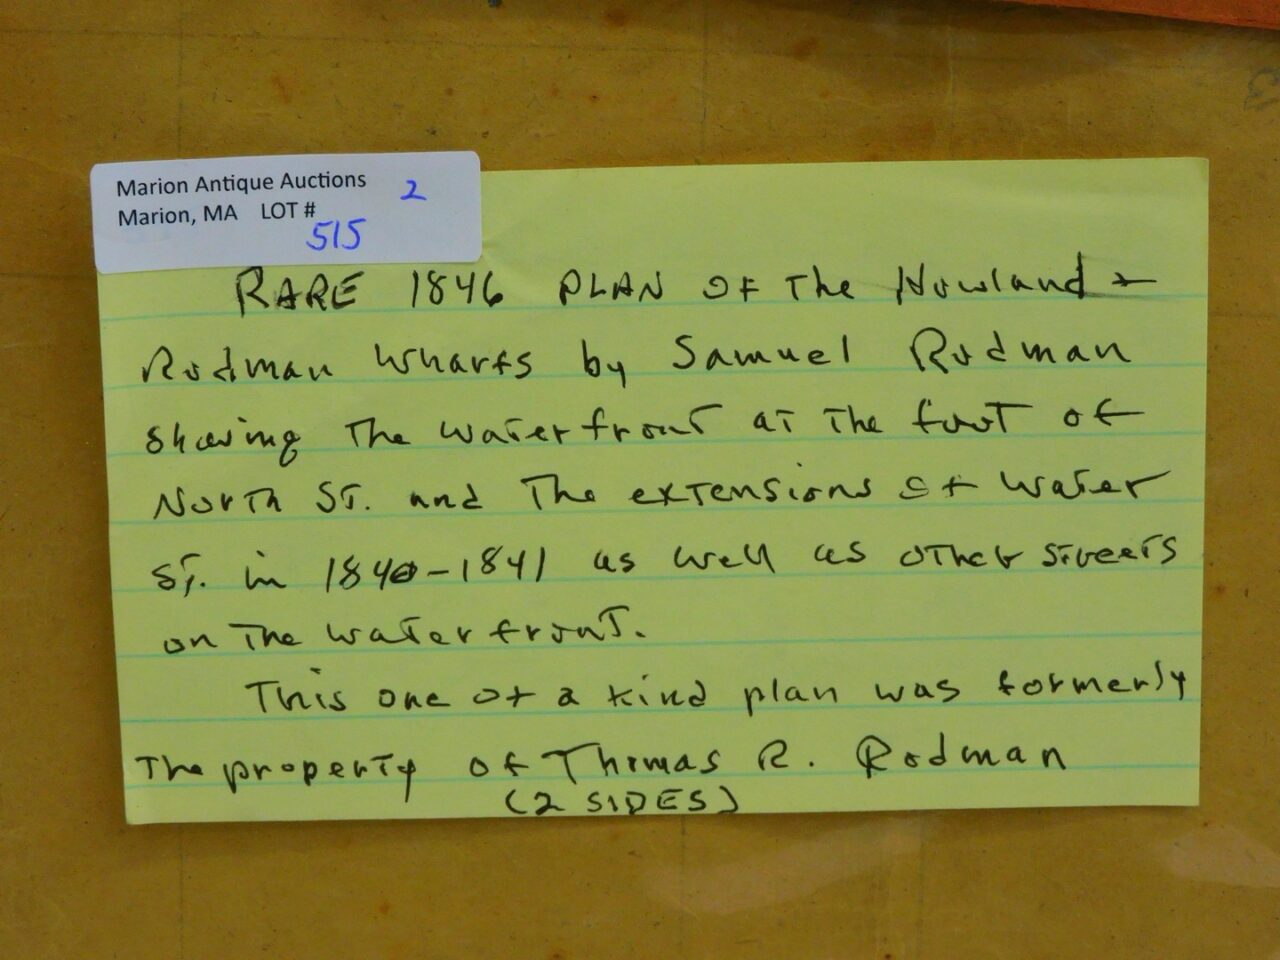 Marion Antique Auctions 2
Marion, MA LOT #
515
RARE 1846 PLAN OF The Howland +
Rodman Wharfs by Samuel Rodman
showing The waterfront at The foot of
North ST. and The extensions of Water
ST. in 1840-1841 as well as other streets
on The waterfront.
This one of a kind plan was formerly
The property of Thomas R. Rodman
(2 SIDES)